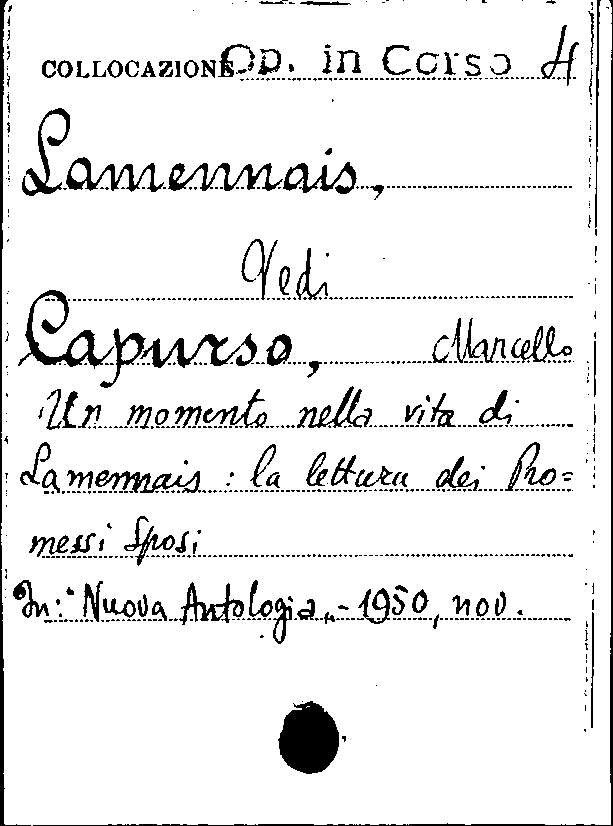 COLLOCAZIONE Op. in Corso 4
Lamennais,
Vedi
Capurso, Marcello
Un momento nella vita di
Lamennais : la lettura dei Pro=
messi Sposi
In: "Nuova Antologia„ - 1950, nov.